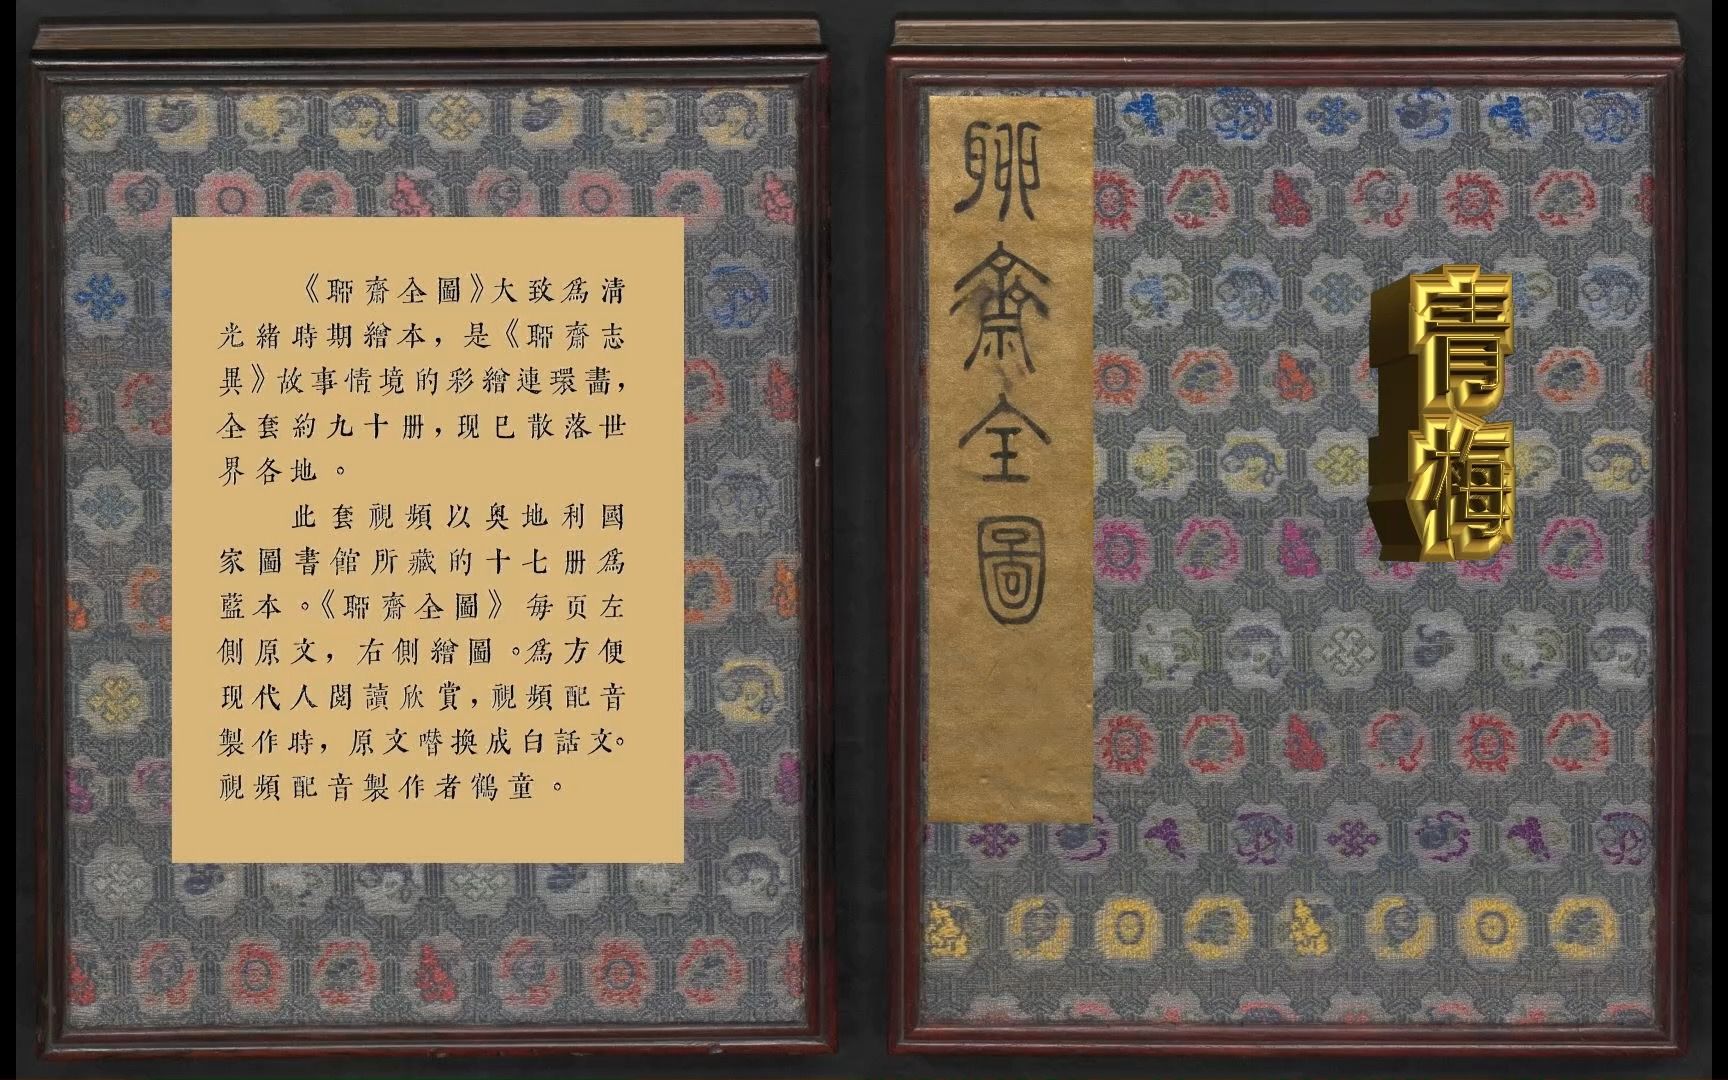 《聊齋全圖》大致爲清
光緒時期繪本，是《聊齋志
異》故事情境的彩繪連環畵，
全套約九十册，现已散落世
界各地。
此套視頻以奥地利國
家圖書館所藏的十七册爲
藍本。《聊齋全圖》每页左
側原文，右側繪圖。爲方便
现代人閲讀欣賞，視頻配音
製作時，原文噆換成白話文。
視頻配音製作者鶴童。
聊齋全圖
青梅